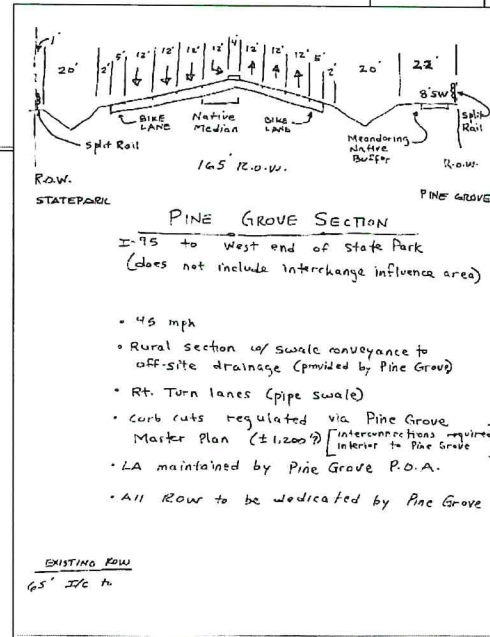 1'
20' 2' 5' 12' 12' 12' 12' 4' 12' 12' 12' 5' 2' 20' 22'
8' SW
Split Rail
BIKE LANE
Native Median
BIKE LAND
Meandering Native Buffer
split Rail
165' R.O.W.
R.O.W.
R.O.W.
STATE PARK
PINE GROVE
PINE GROVE SECTION
I-95 to West end of State Park
(does not include interchange influence area)
• 45 mph
• Rural section w/ swale conveyance to
off-site drainage (provided by Pine Grove)
• Rt. Turn lanes (pipe swale)
• Curb cuts regulated via Pine Grove
Master Plan (± 1,200') [interconnections required
interior to Pine Grove
• LA maintained by Pine Grove P.O.A.
• All ROW to be dedicated by Pine Grove
EXISTING ROW
65' I/C to